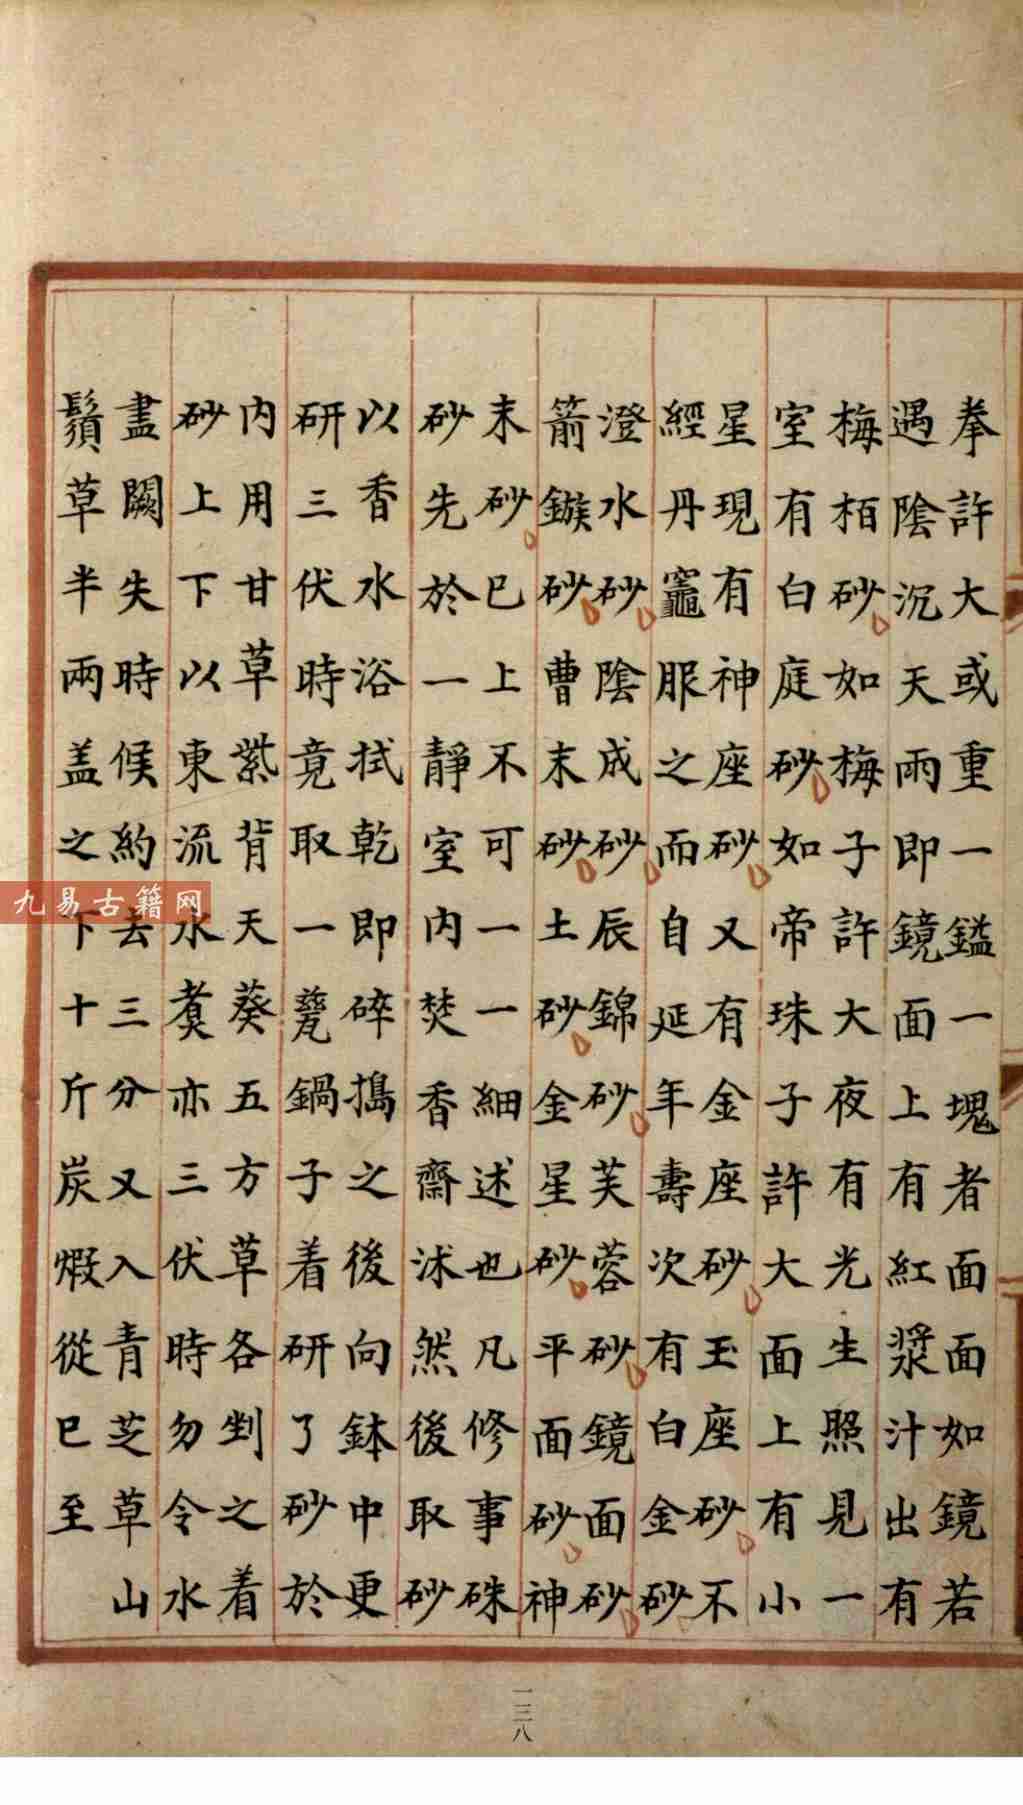 拳許大或重一鎰一塊者面面如鏡若
遇陰沉天雨即鏡面上有紅漿汁出有
梅栢砂如梅子許大夜有光生照見一
室有白庭砂如帝珠子許大面上有小
星現有神座砂又有金座砂玉座砂不
經丹竈服之而自延年壽次有白金砂
澄水砂陰成砂辰錦砂芙蓉砂鏡面砂
箭鏃砂曹末砂土砂金星砂平面砂神
末砂已上不可一一細述也凡修事硃
砂先於一靜室内焚香齋沐然後取砂
以香水浴拭乾即碎搗之後向鉢中更
研三伏時竟取一甆鍋子着研了砂於
内用甘草紫背天葵五方草各剉之着
砂上下以東流水煑亦三伏時勿令水
盡闕失時候約去三分又入青芝草山
鬚草半兩盖之下十斤炭煅從巳至
九易古籍网
一三八